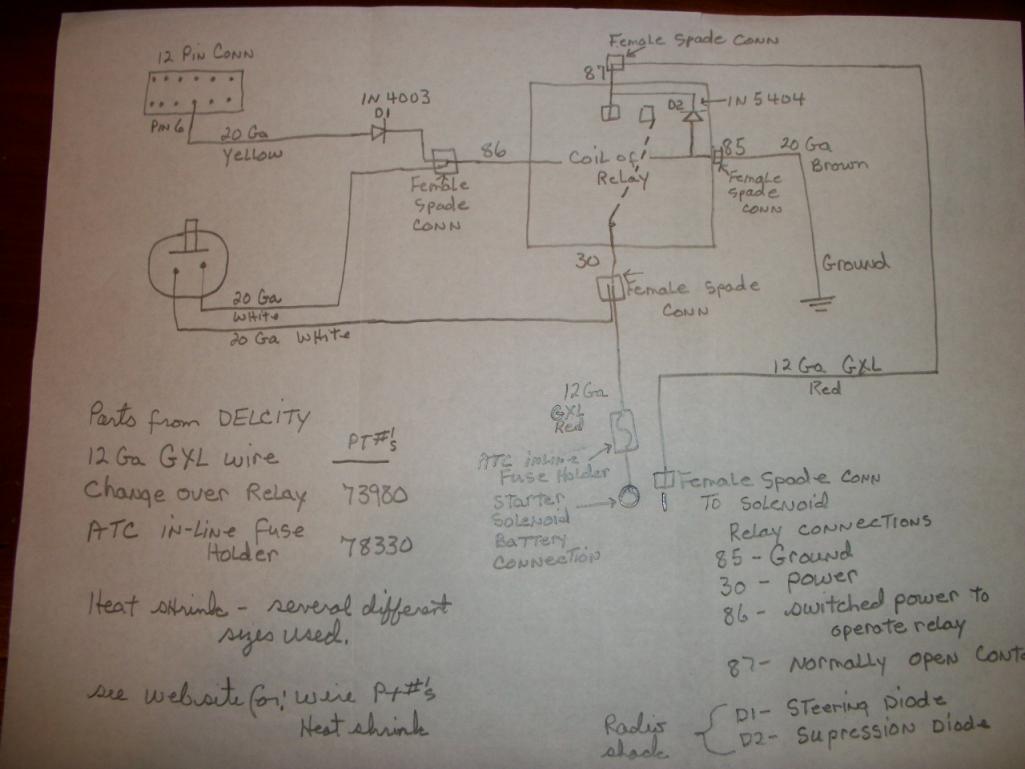 12 PIN CONN
PIN 6
20 Ga
Yellow
IN 4003
D1
86
Female
Spade
CONN
Female Spade CONN
87
D2
IN 5404
Coil of
Relay
85
20 Ga
Brown
Female
Spade
CONN
Ground
30
Female Spade
CONN
20 Ga
White
20 Ga White
12 Ga GXL
Red
12 Ga
GXL
Red
ATC inline
Fuse Holder
Starter
Solenoid
Battery
Connection
Female Spade CONN
To Solenoid
Parts from DELCITY
PT #'s
12 Ga GXL wire
Change over Relay 73980
ATC in-line fuse
Holder 78330
Heat shrink - several different
sizes used.
see website for: wire Pt#'s
Heat shrink
Relay connections
85 - Ground
30 - power
86 - switched power to
operate relay
87 - Normally open Conta
Radio
shack
D1 - Steering Diode
D2 - Supression Diode